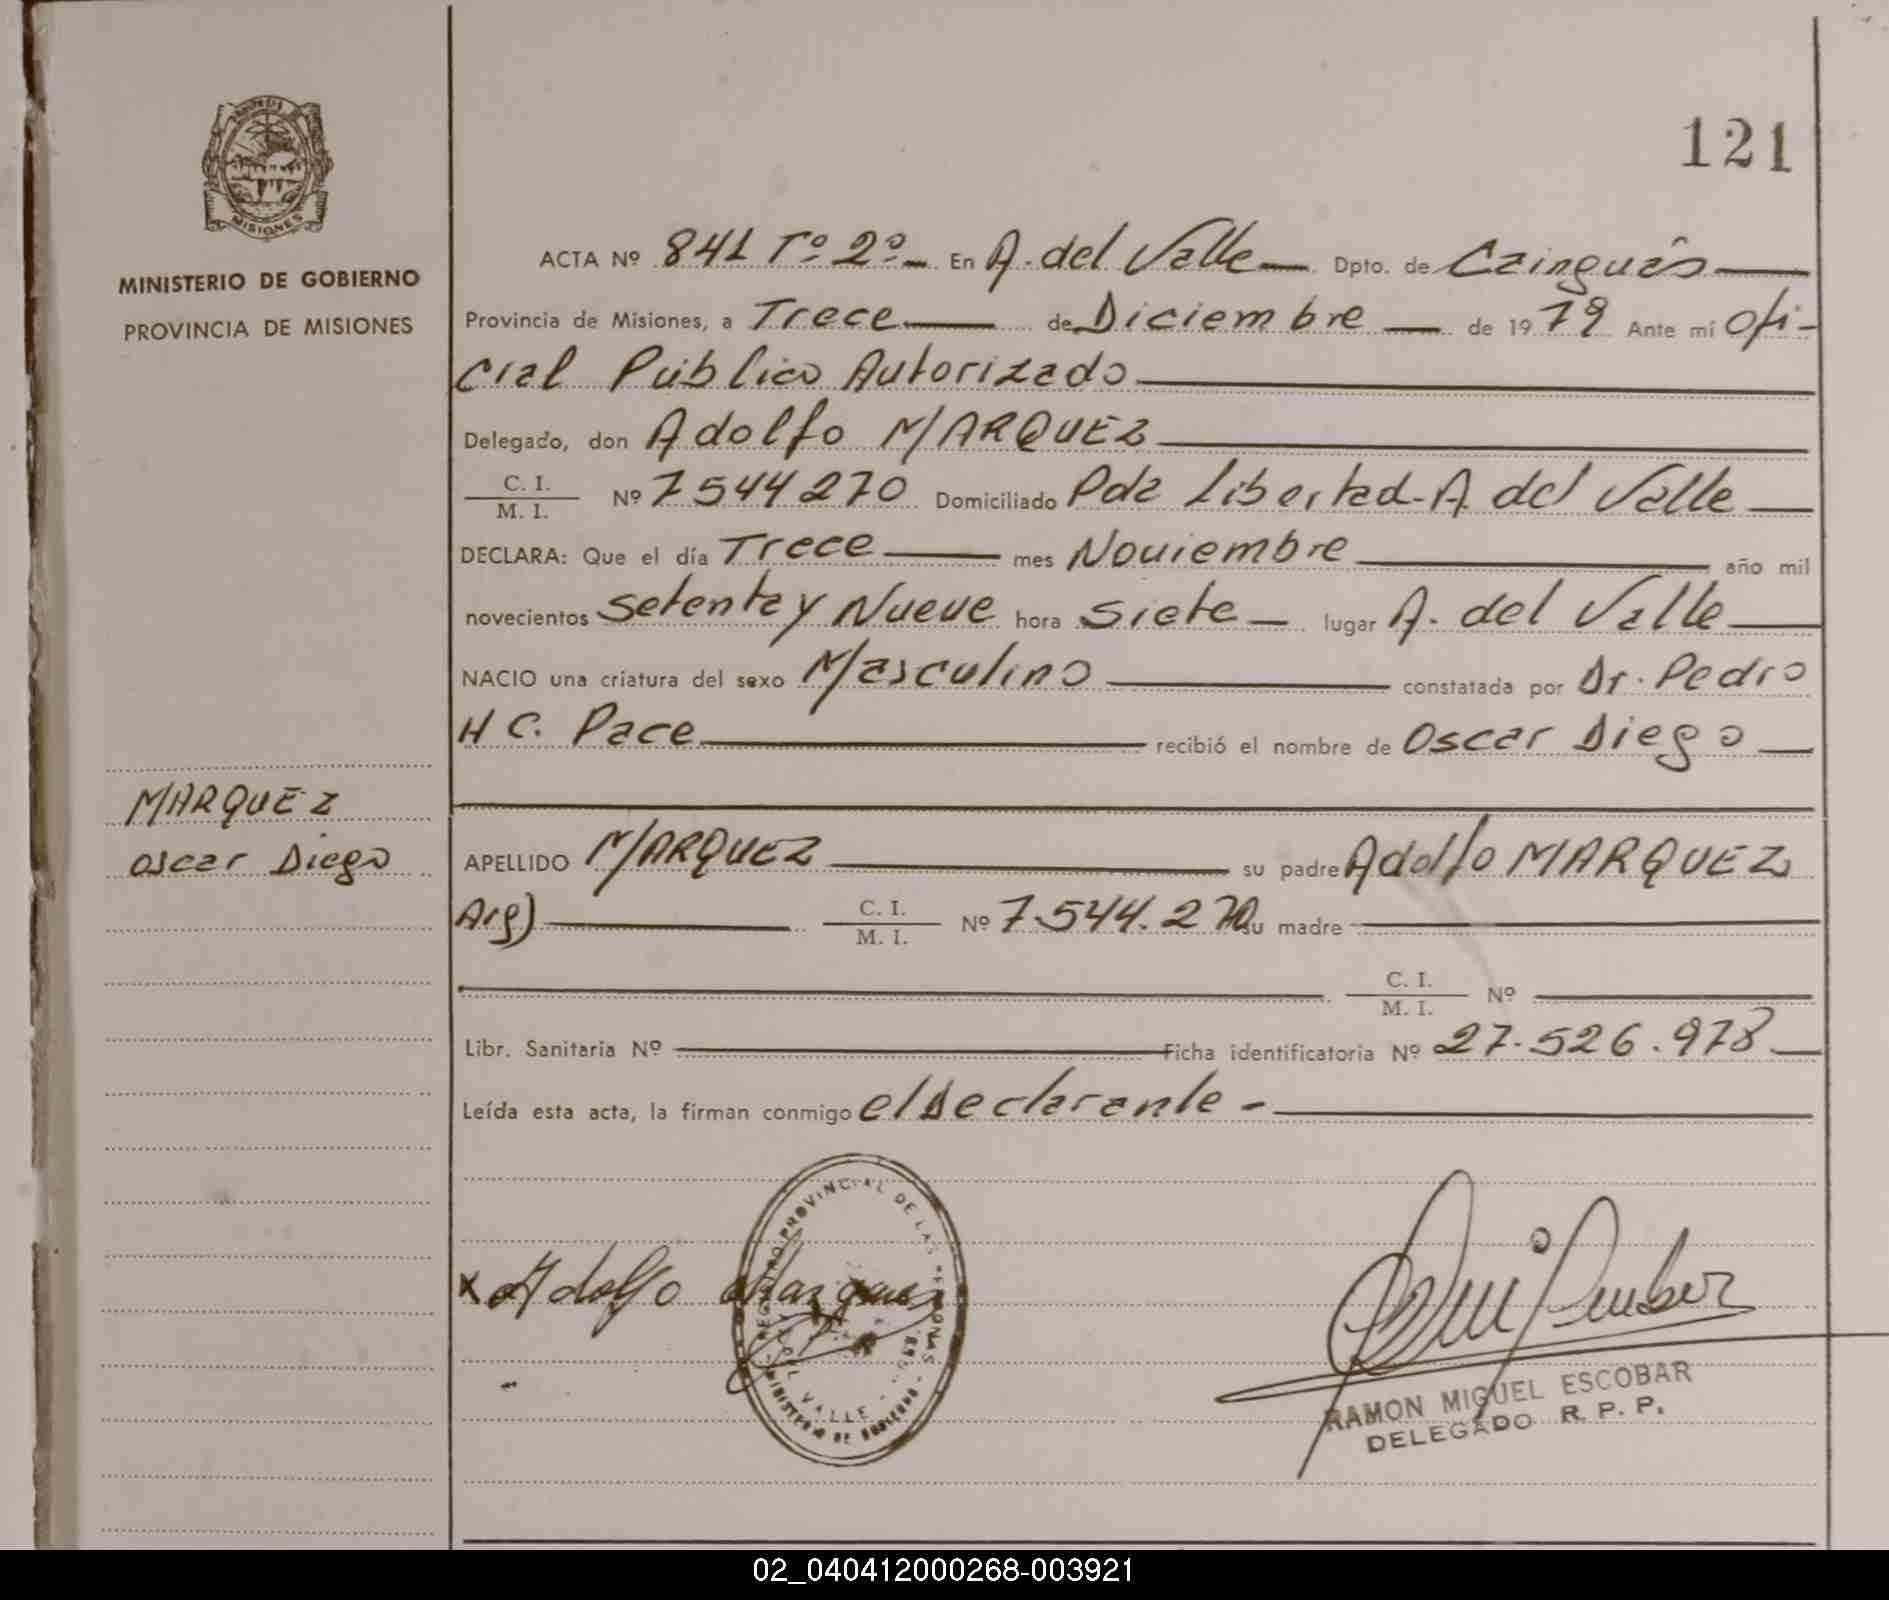 121
MISIONES
MINISTERIO DE GOBIERNO
PROVINCIA DE MISIONES
MARQUEZ
Oscar Diego
ACTA Nº 841 Tº 2º - En A. del Valle Dpto. de Cainguás
Provincia de Misiones, a Trece de Diciembre de 1979 Ante mí Ofi-
cial Público Autorizado
Delegado, don Adolfo MARQUEZ
C. I. / M. I. Nº 7544270 Domiciliado Pda Libertad - A. del Valle
DECLARA: Que el día Trece mes Noviembre año mil
novecientos Setenta y Nueve hora Siete lugar A. del Valle
NACIO una criatura del sexo Masculino constatada por Dr. Pedro
H C. Pace recibió el nombre de Oscar Diego
APELLIDO MARQUEZ su padre Adolfo MARQUEZ
Arg) C. I. / M. I. Nº 7.544.270 su madre
C. I. / M. I. Nº
Libr. Sanitaria Nº Ficha identificatoria Nº 27.526.978
Leída esta acta, la firman conmigo el Declarante -
REGISTRO PROVINCIAL DE LAS PERSONAS
DEL VALLE
MINISTERIO DE GOBIERNO
x Adolfo Marquez
RAMON MIGUEL ESCOBAR
DELEGADO R. P. P.
02_040412000268-003921